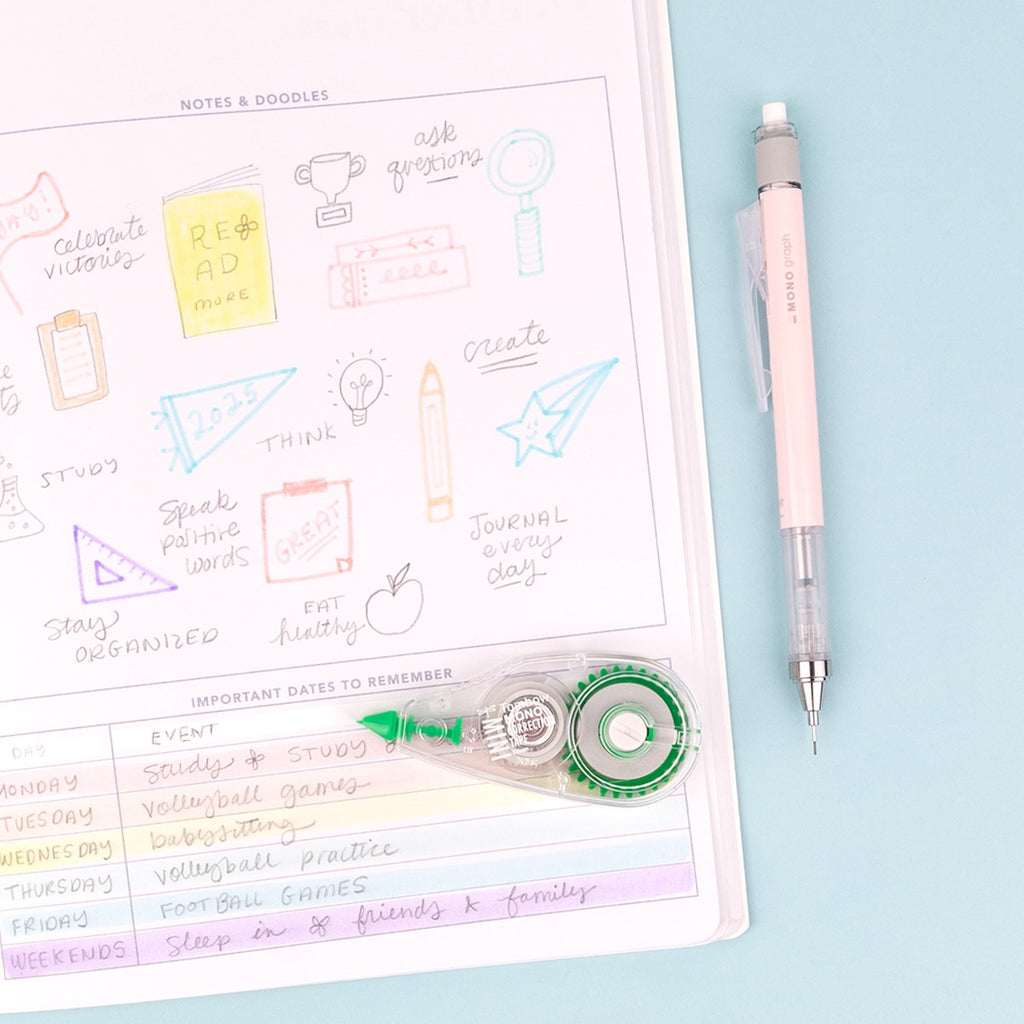 NOTES & DOODLES
ask
questions
celebrate
victories
RE
AD
MORE
create
2025
THINK
STUDY
Speak
positive
words
GREAT
JOURNAL
every
day
EAT
healthy
Stay
ORGANIZED
IMPORTANT DATES TO REMEMBER
DAY EVENT
MONDAY Study & STUDY
TUESDAY volleyball games
WEDNESDAY babysitting
THURSDAY volleyball practice
FRIDAY FOOTBALL GAMES
WEEKENDS Sleep in & friends & family
Tombow
MONO
CORRECTION
TAPE
MINI
MONO graph